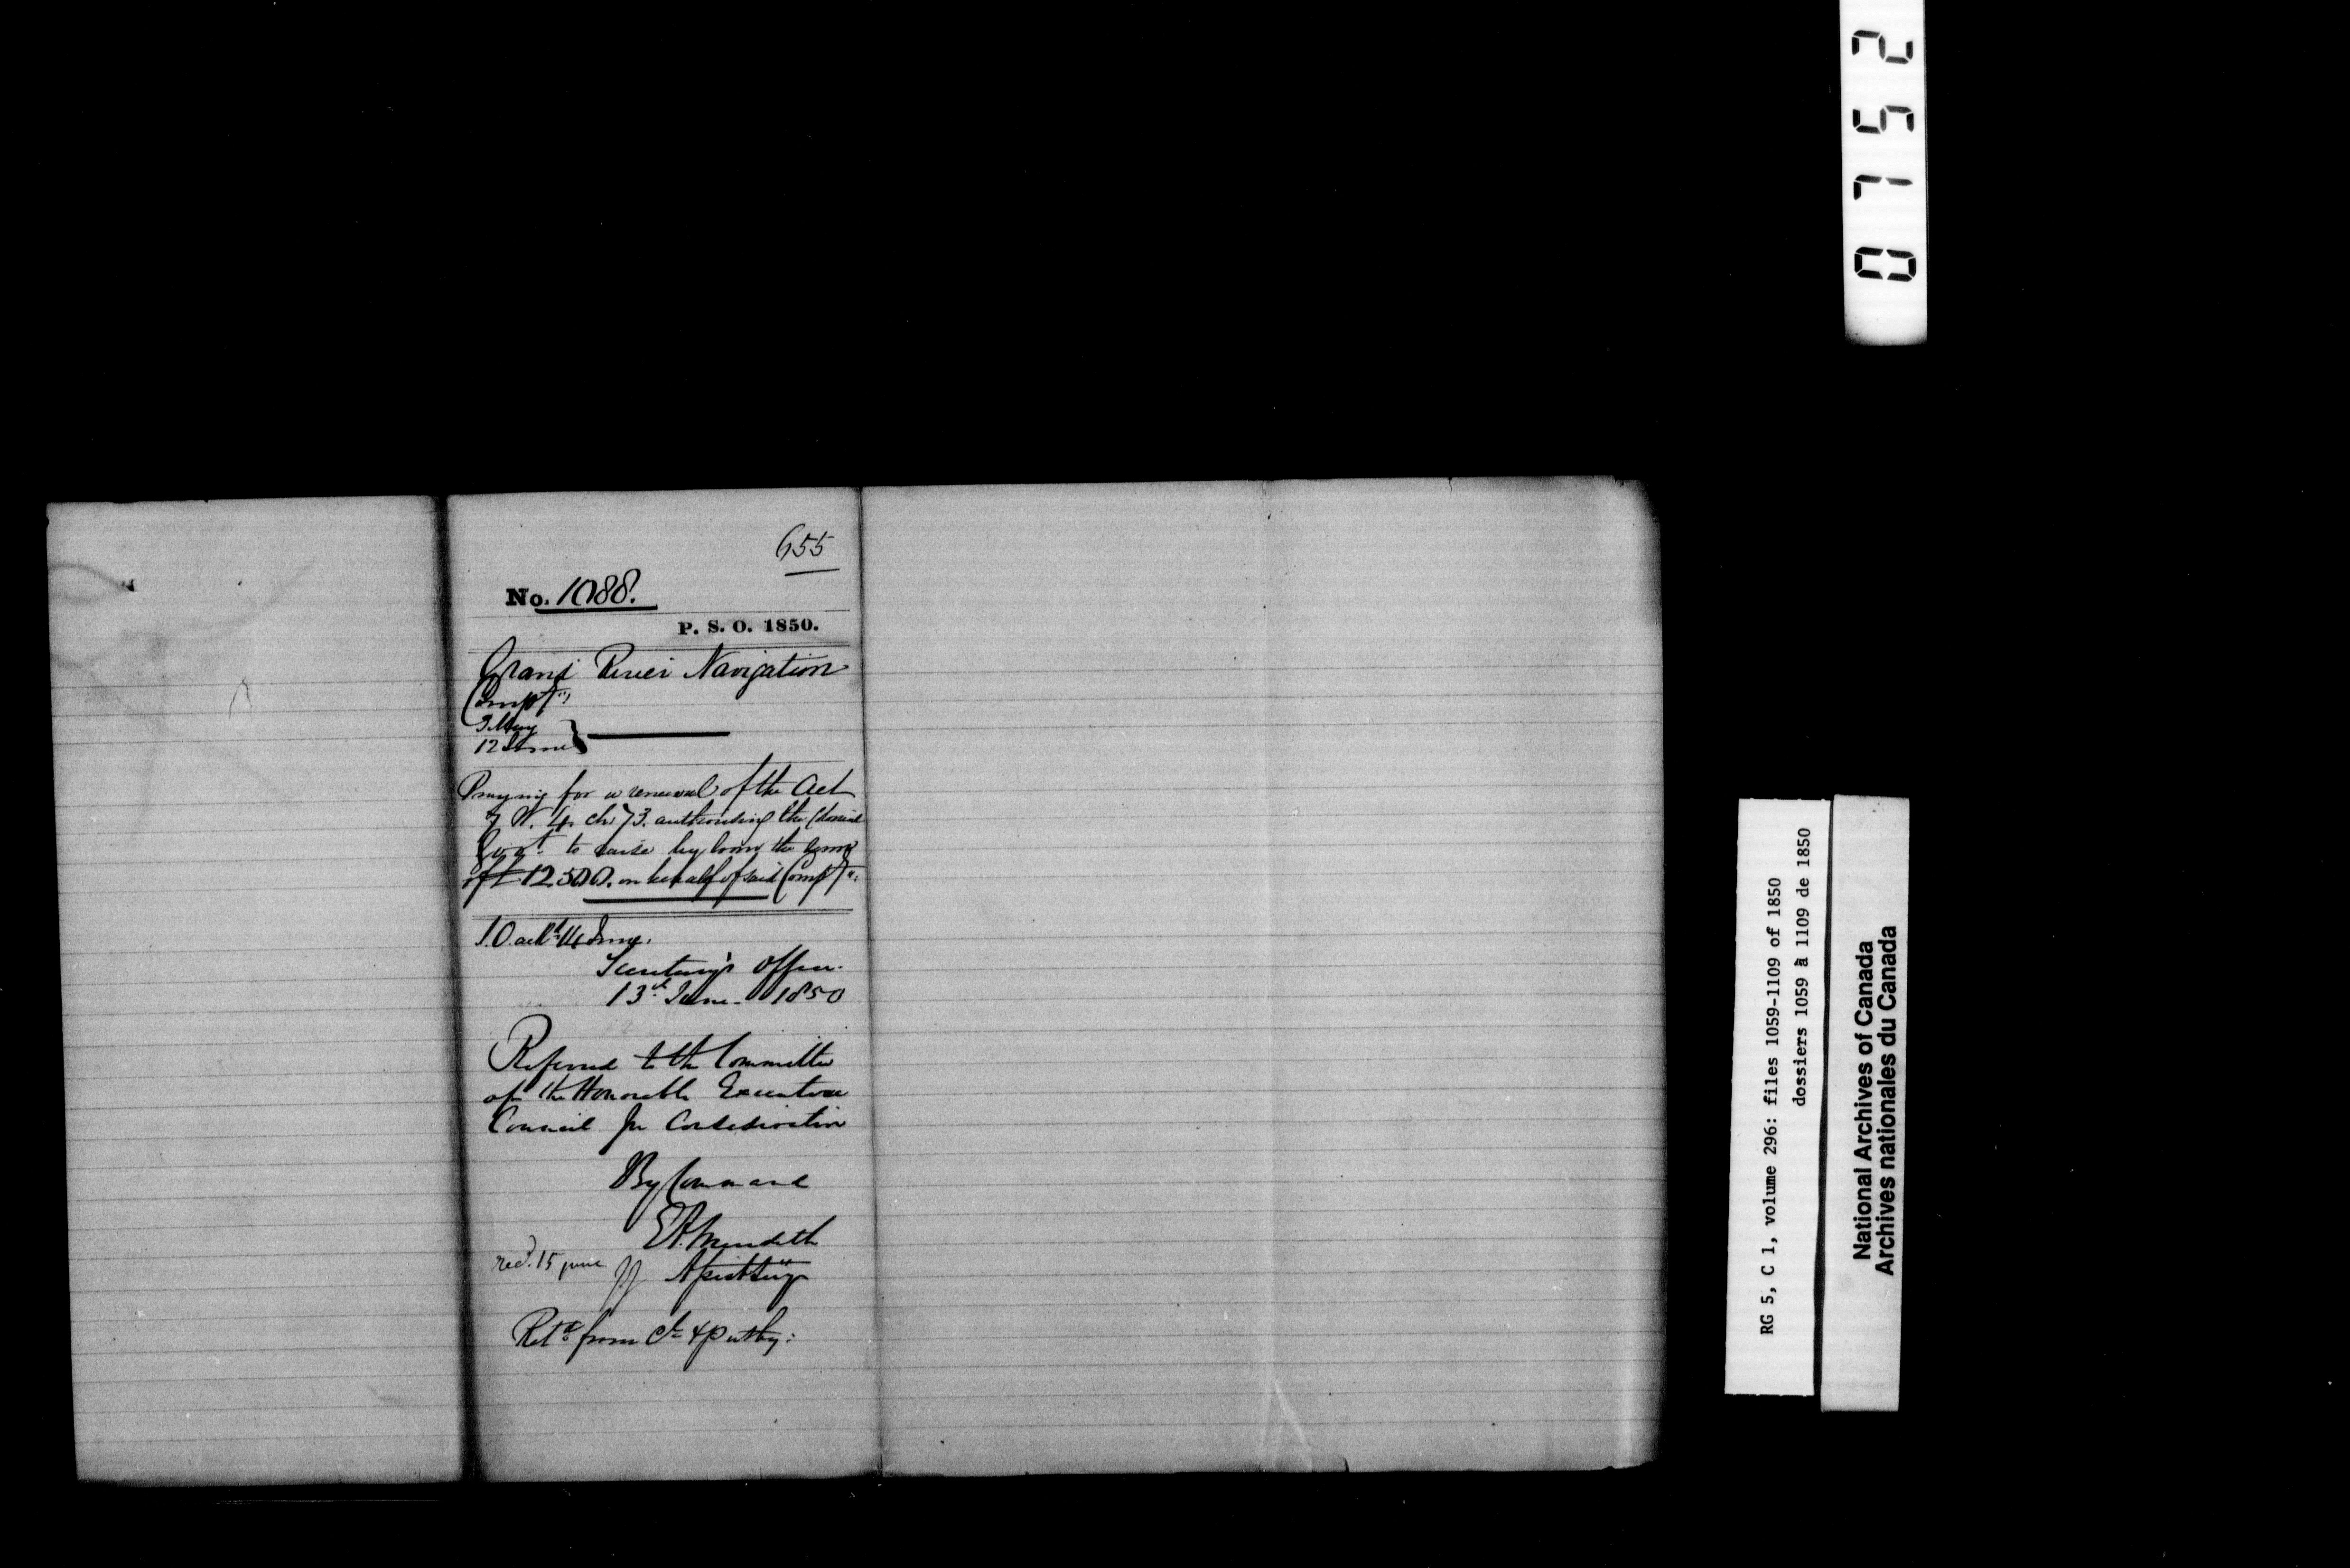 655
No. 1088.
P. S. O. 1850.
Grand River Navigation
Compy
9 May
12 June
Praying for a renewal of the Act
7 W. 4. ch. 73. authorising the
Govt. to raise by loan the sum
of £12.500. on behalf of said Compy.
14 June.
Secretary's Office
13th June 1850
Referred to the Committee
of the Honorable Executive
Council for Consideration
By Command
E A Meredith
recd. 15 june
JJ Asist Secy
Retd. from
0752
RG 5, C 1, volume 296: files 1059-1109 of 1850
dossiers 1059 à 1109 de 1850
National Archives of Canada
Archives nationales du Canada